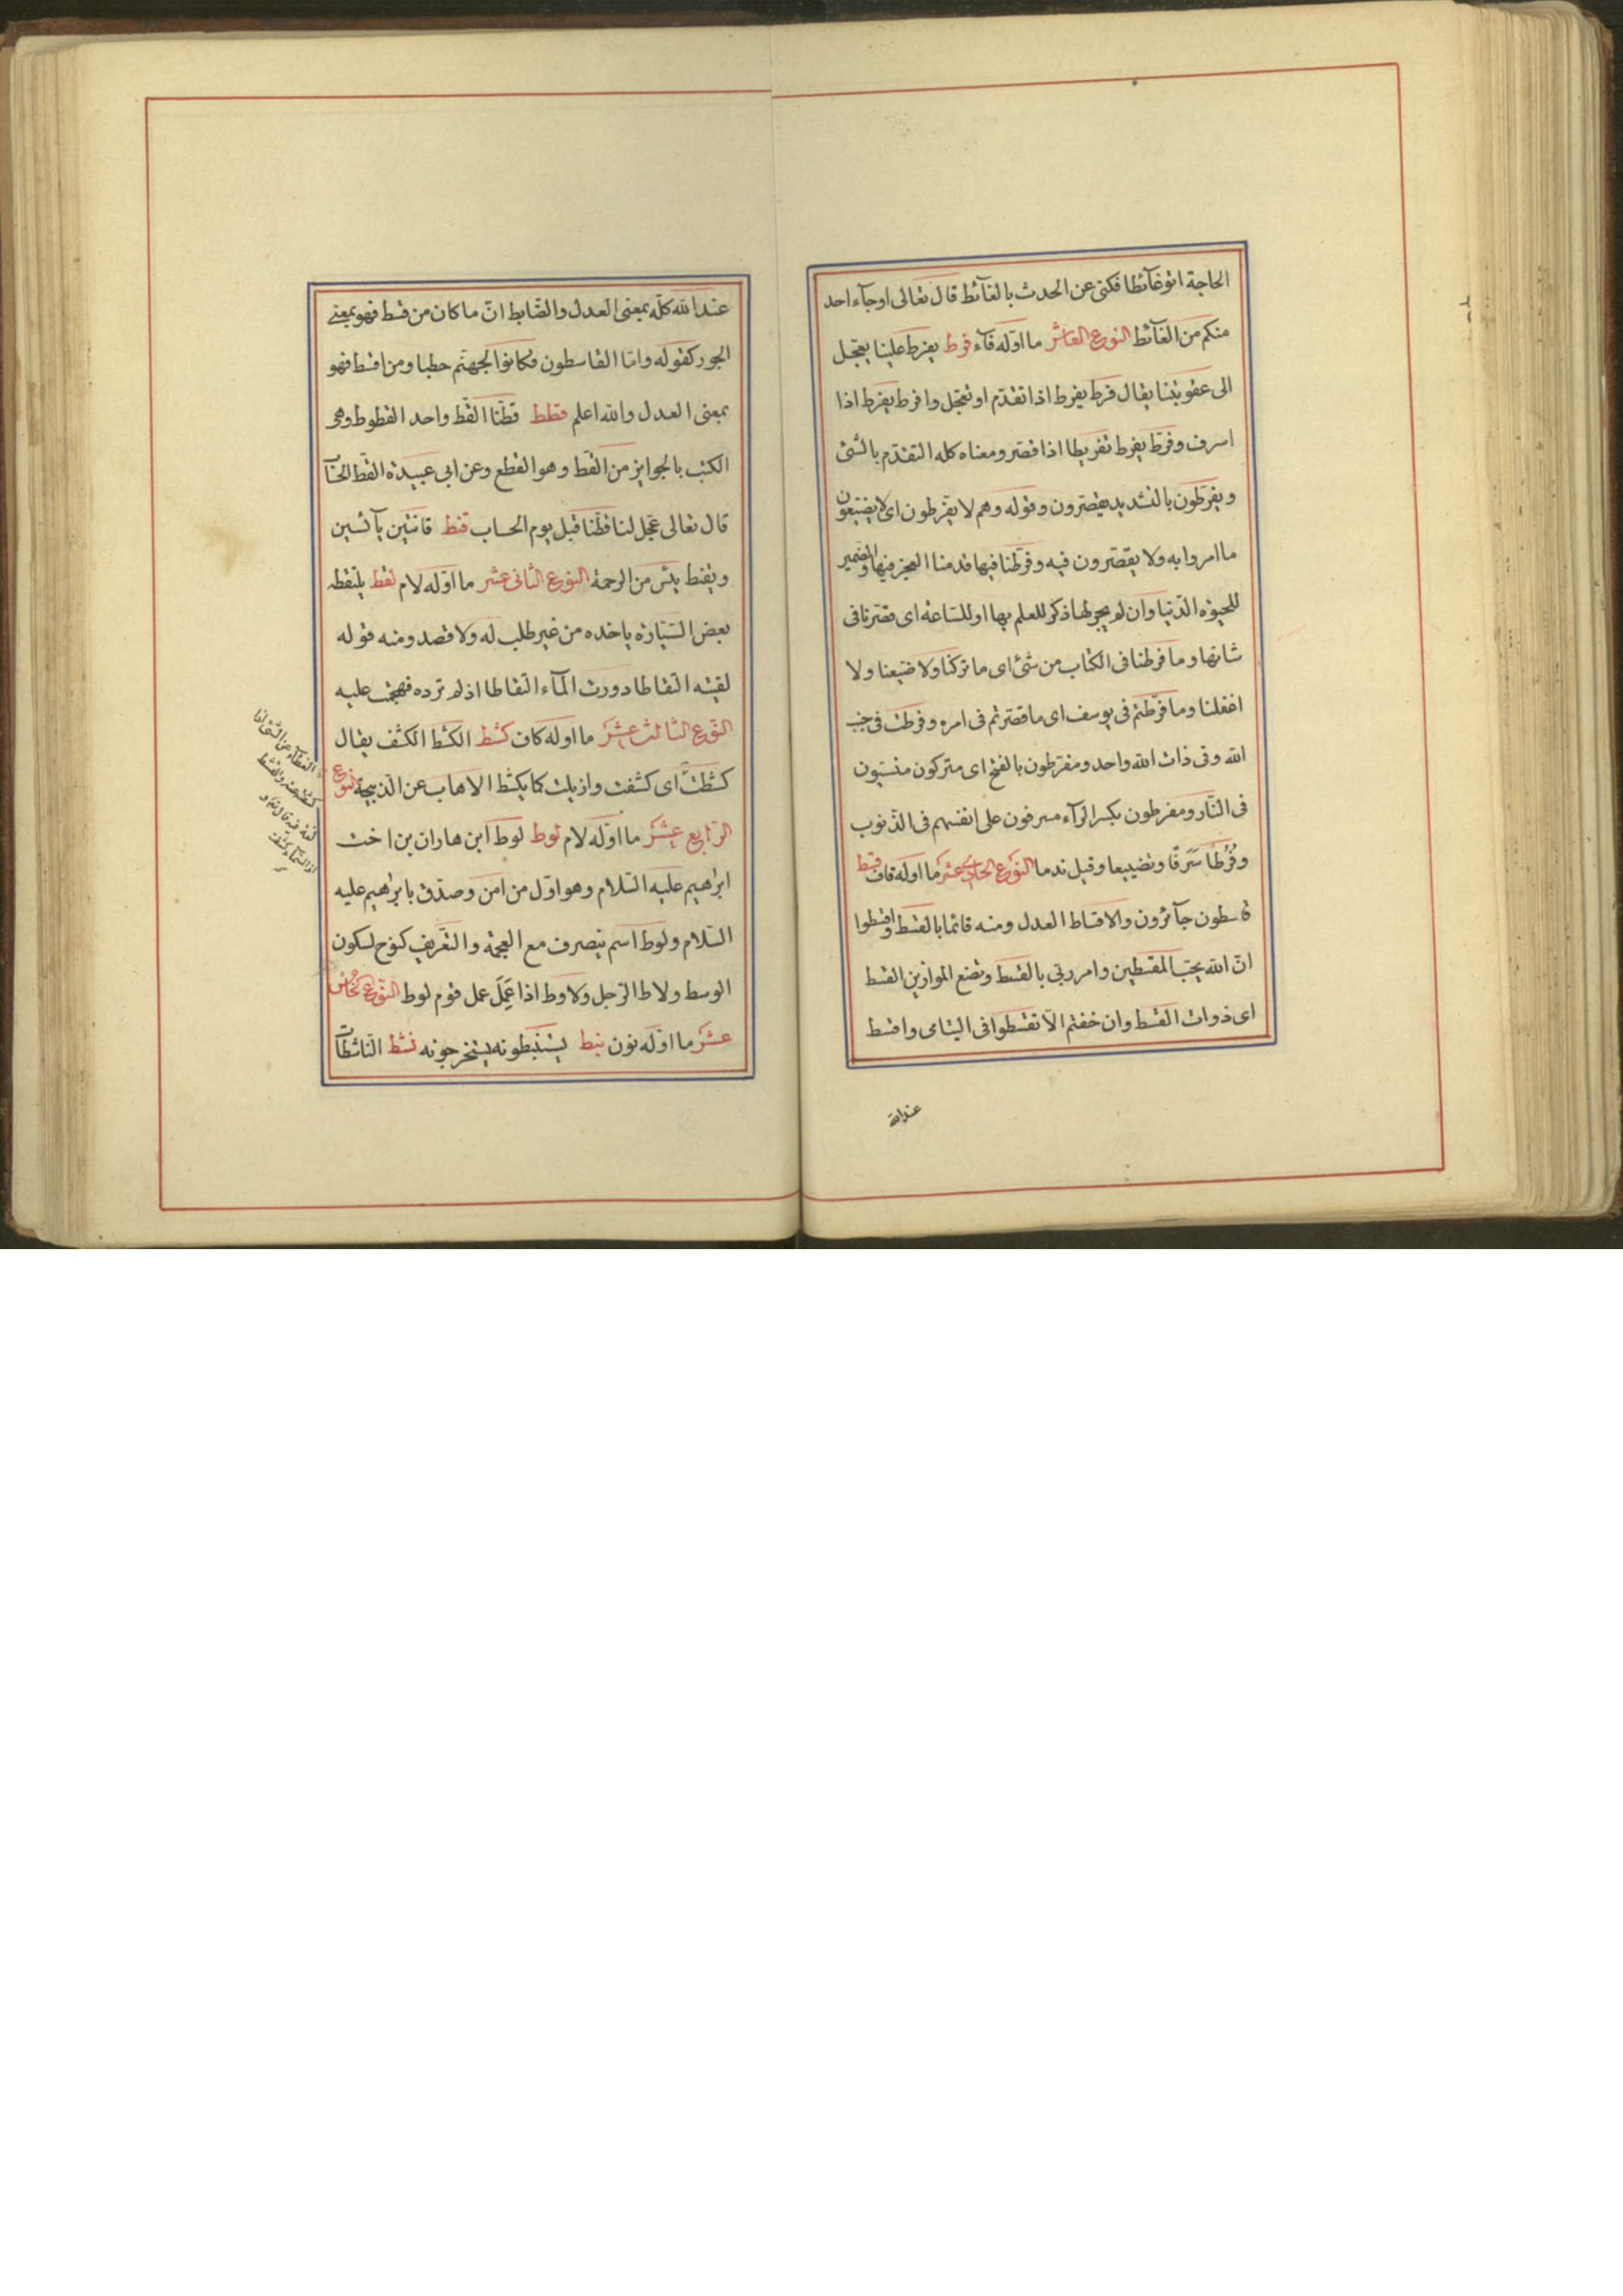 الحاجة اتوغآئطا فكنى عن الحدث بالغآئط قال تعالى اوجآء احد
منكم من الغآئط النوع العاشر ما اوّله فآء فرط يفرط علينا يعجل
الى عقوبتنا يقال فرط يفرط اذا تقدّم او تعجّل وافرط يفرط اذا
اسرف وفرّط يفرط تفريطا اذا قصّر ومعناه كله التقدّم بالشئ
ويفرّطون بالتشديد يقصّرون وقوله وهم لا يفرّطون اى لا يضيّعون
ما امروا به ولا يقصّرون فيه وفرّطنا فيها قدمنا العجز فيها والضمير
للحيوة الدّنيا وان لم يجر لها ذكر للعلم بها او للسّاعة اى قصّرنا فى
شانها وما فرطنا فى الكتاب من شئ اى ما تركنا ولا ضيّعنا ولا
اغفلنا وما فرّطتم فى يوسف اى ما قصّرتم فى امره وفرطت فى جنب
الله وفى ذات الله واحد ومفرطون بالفتح اى متركون منسيّون
فى النّار ومفرطون بكسر الرّآء مسرفون على انفسهم فى الذّنوب
وفُرُطًا سَرَفًا وتضييعا وقيل ندما النّوع الحادى عشر ما اوله قاف قسط
قاسطون جآئرون والاقساط العدل ومنه قائما بالقسط واقسطوا
انّ الله يحبّ المقسطين وامر ربّى بالقسط ونضع الموازين القسط
اى ذوات القسط وان خفتم الّا تقسطوا فى اليتامى واقسط
عند الله
عند الله كلّه بمعنى العدل والضّابط انّ ما كان من قسط فهو بمعنى
الجور كقوله وامّا القاسطون فكانوا لجهنّم حطبا ومن اقسط فهو
بمعنى العدل والله اعلم قطط قطّنا القطّ واحد القطوط وهى
الكتب بالجوايز من القطّ وهو القطع وعن ابى عبيدة القطّ الحساب
قال تعالى عجّل لنا قطّنا قبل يوم الحساب قنط قانتين يآئسين
ويقنط يئس من الرحمة النوع الثانى عشر ما اوّله لام لقط يلتقطه
بعض السّيّارة ياخده من غير طلب له ولا قصد ومنه قوله
لقيته التقاطا ووردت المآء التقاطا اذ لم ترده فهجمت عليه
النّوع الثالث عشر ما اوله كاف كشط الكشط الكشف يقال
كشطت اى كشفت وازيلت كما يكشط الاهاب عن الذبيحة النوع
الرّابع عشر ما اوّله لام لوط لوط ابن هاران بن اخت
ابرٰهيم عليه السّلام وهو اوّل من امن وصدّق بابرٰهيم عليه
السّلام ولوط اسم ينصرف مع العجمة والتّعريف كنوح لسكون
الوسط ولاط الرّجل ولاوط اذا عَمِلَ عمل قوم لوط النّوع الخامس
عشر ما اوّله نون نبط يستنبطونه يستخرجونه نشط النّاشطات
الغطآء عن الشئ
لغة فيه